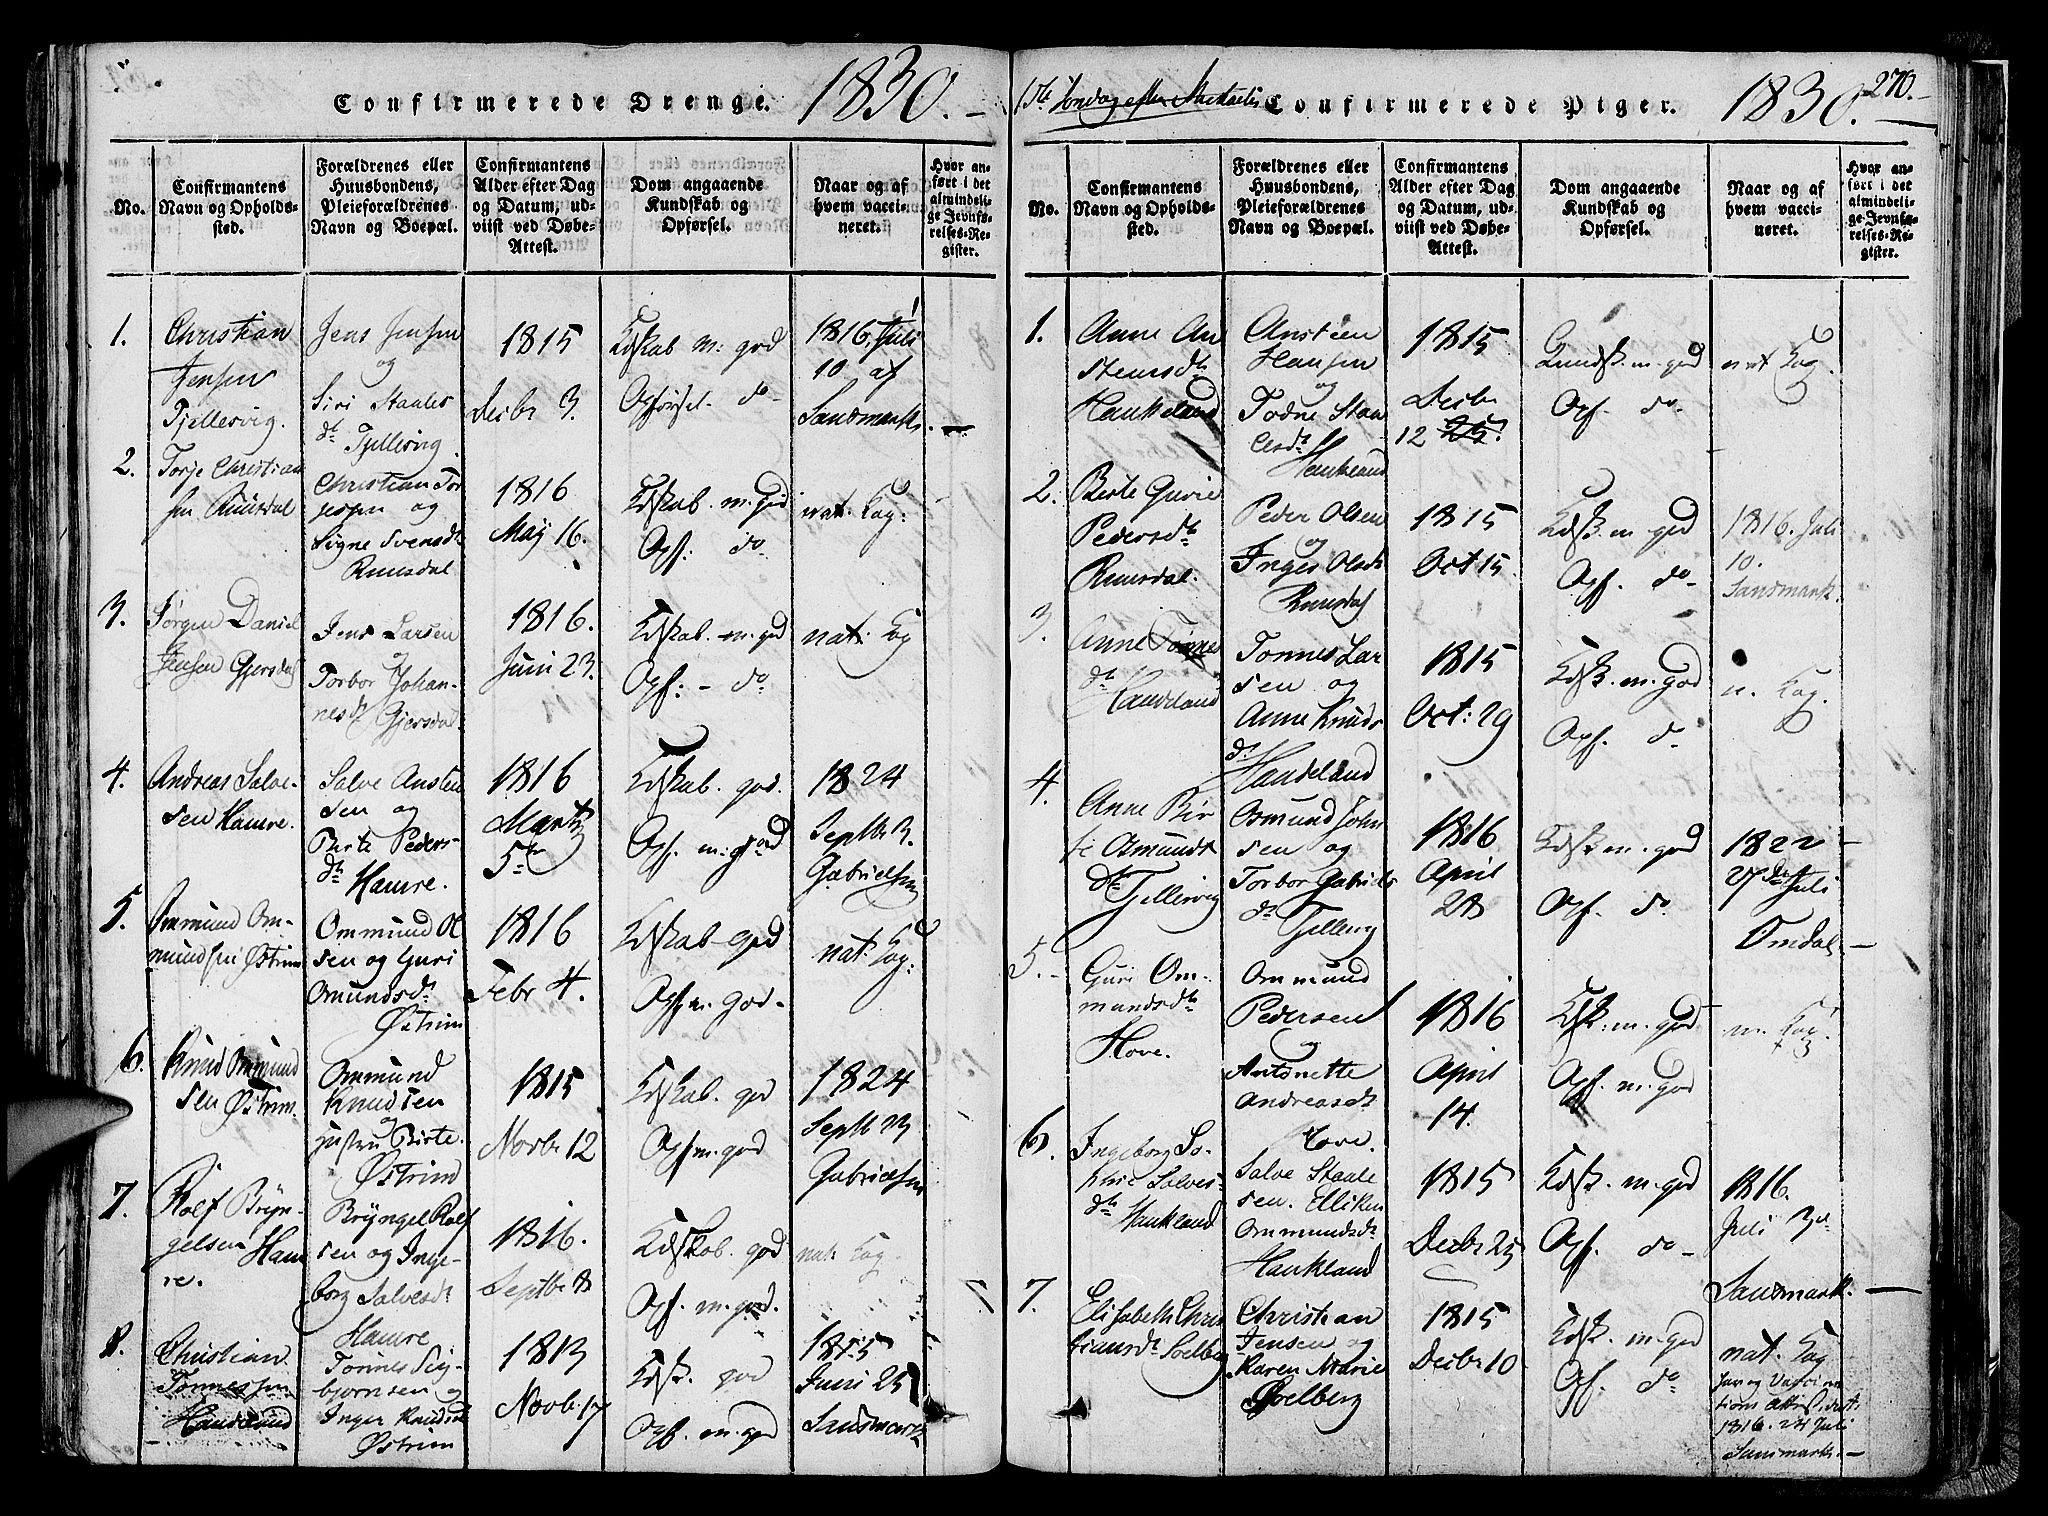 Confirmerede Drenge. 1830.
No.
Confirmantens
Navn og Opholds-
sted.
Forældrenes eller
Huusbondens,
Pleieforældrenes
Navn og Boepæl.
Confirmantens
Alder efter Dag
og Datum, ud-
viist ved Døbe-
Attest.
Dom angaaende
Kundskab og
Opførsel.
Naar og af
hvem vacci-
neret.
Hvor an-
ført i det
almindeli-
ge Jevnfø-
relses-Re-
gister.
1.
Christian
Jensen
Tjellesvig.
Jens Jensen
og
Siri Staales
dt Tjellesvig
1815
Decbr 3.
Kdskab m: god
Opførsel. do
1816 Juli
10 af
Sandsmark
2.
Torje Christian
sen Ruusdal
Christian Tor
jesen og
Signe Svensdt
Ruusdal
1816
May 16.
Kdskab. m. god
Opf: do
nat. Kop:
3.
Jørgen Daniel
Jensen Gjersdal
Jens Larsen
og
Torbor Johan-
nesdt Gjersdal
1816.
Juni 23.
Kdskab. m. god
Opf: - do
nat. Kop
4.
Andreas Salve-
sen Hamre.
Salve Austen
sen og
Berte Peders-
dt Hamre.
1816
Martz
5te
Kdskab. god.
Opf. m: god
1824
Septb 3.
Gabrielsen
5.
Ommund Om-
mundsen Østrim
Ommund Ol
sen og Guri
Omundsdt
Østrim
1816
Febr 4.
Kdskab god
Opf m. god-
nat. Kop:
6.
Knud Ommund
sen Østrim.
Ommund
Knudsen
og
Birte.
Østrim
1815
Novbr 12
Kdskab. god
Opf m. god
1824
Septb 23
Gabrielsen
7.
Rolf Bryn-
gelsen Ham
re.
Bryngel Rolf
sen og Inge-
borg Salvesdt
Hamre
1816.
Septbr 8
Kdskab. god
Opf. m. god.
nat. Kop.
8.
Christian
Tønnessen
Haudeland
Tønnes Sig-
bjørnsen og
Inger Knudsdt
Østrim
1813
Novbr 17
Kdsk. god
Opf. m. god
1815
Juni 25
Sandsmark
1ste Søndag efter Michaelis
Confirmerede Piger. 1830. 270.
No.
Confirmantens
Navn og Opholds-
sted.
Forældrenes eller
Huusbondens,
Pleieforældrenes
Navn og Boepæl.
Confirmantens
Alder efter Dag
og Datum, ud-
viist ved Døbe-
Attest.
Dom angaaende
Kundskab og
Opførsel.
Naar og af
hvem vacci-
neret.
Hvor an-
ført i det
almindeli-
ge Jevnfø-
relses-Re-
gister.
1.
Anne An
stensdt
Haukeland
Ansteen
Hansen
og
Todne Staa
lesdt
Haukeland
1815
Decbr
12 25.
Kundsk. m. god
Opf. do
nat Kop.
2.
Berte Gurie
Pedersdt
Ruusdal.
Peder Olsen
og
Inger Olsdt
Ruusdal
1815
Oct 15.
Kdsk. m. god
Opf. do
1816. Juli
10.
Sandsmark.
3.
Anne Tønnes
dt
Haudeland
Tønnes Lar
sen og
Anne Knuds
dt Haudeland
1815
Oct: 29
Kdsk. m. god
Opf. do
n. Kop.
4.
Anne Bir
te Osmunds
dt Tjellesvig
Osmund John
sen og
Torbor Gabriels
dt Tjellesvig
1816
April
28
Kdsk m. god
Opf. do.
1822
27de Juli
Omdal.
5.
Guri Om-
mundsdt
Hove.
Ommund
Pedersen
og
Antonette
Andreasdt
Hove.
1816
April
14.
Kdsk: m. god
Opf. m. god
n. Kop.
6.
Ingeborg So-
phie Salves-
dt Haukland
Salve Staale
sen. Elliken
Ommundsdt
Haukland
1815
Decbr 25
Kdsk. m. god
Opf. do
1816.
Juli 3die
Sandsmark.
7.
Elisabeth Chris
tiansdt Soelberg
Christian
Jensen og
Karen Marie
Soelberg
1815
Decbr 10
Kdsk. m. god
Opf. do
nat. Kop
har og Vacci na
tions Attest
1816. 24 Juli
Sansmark.